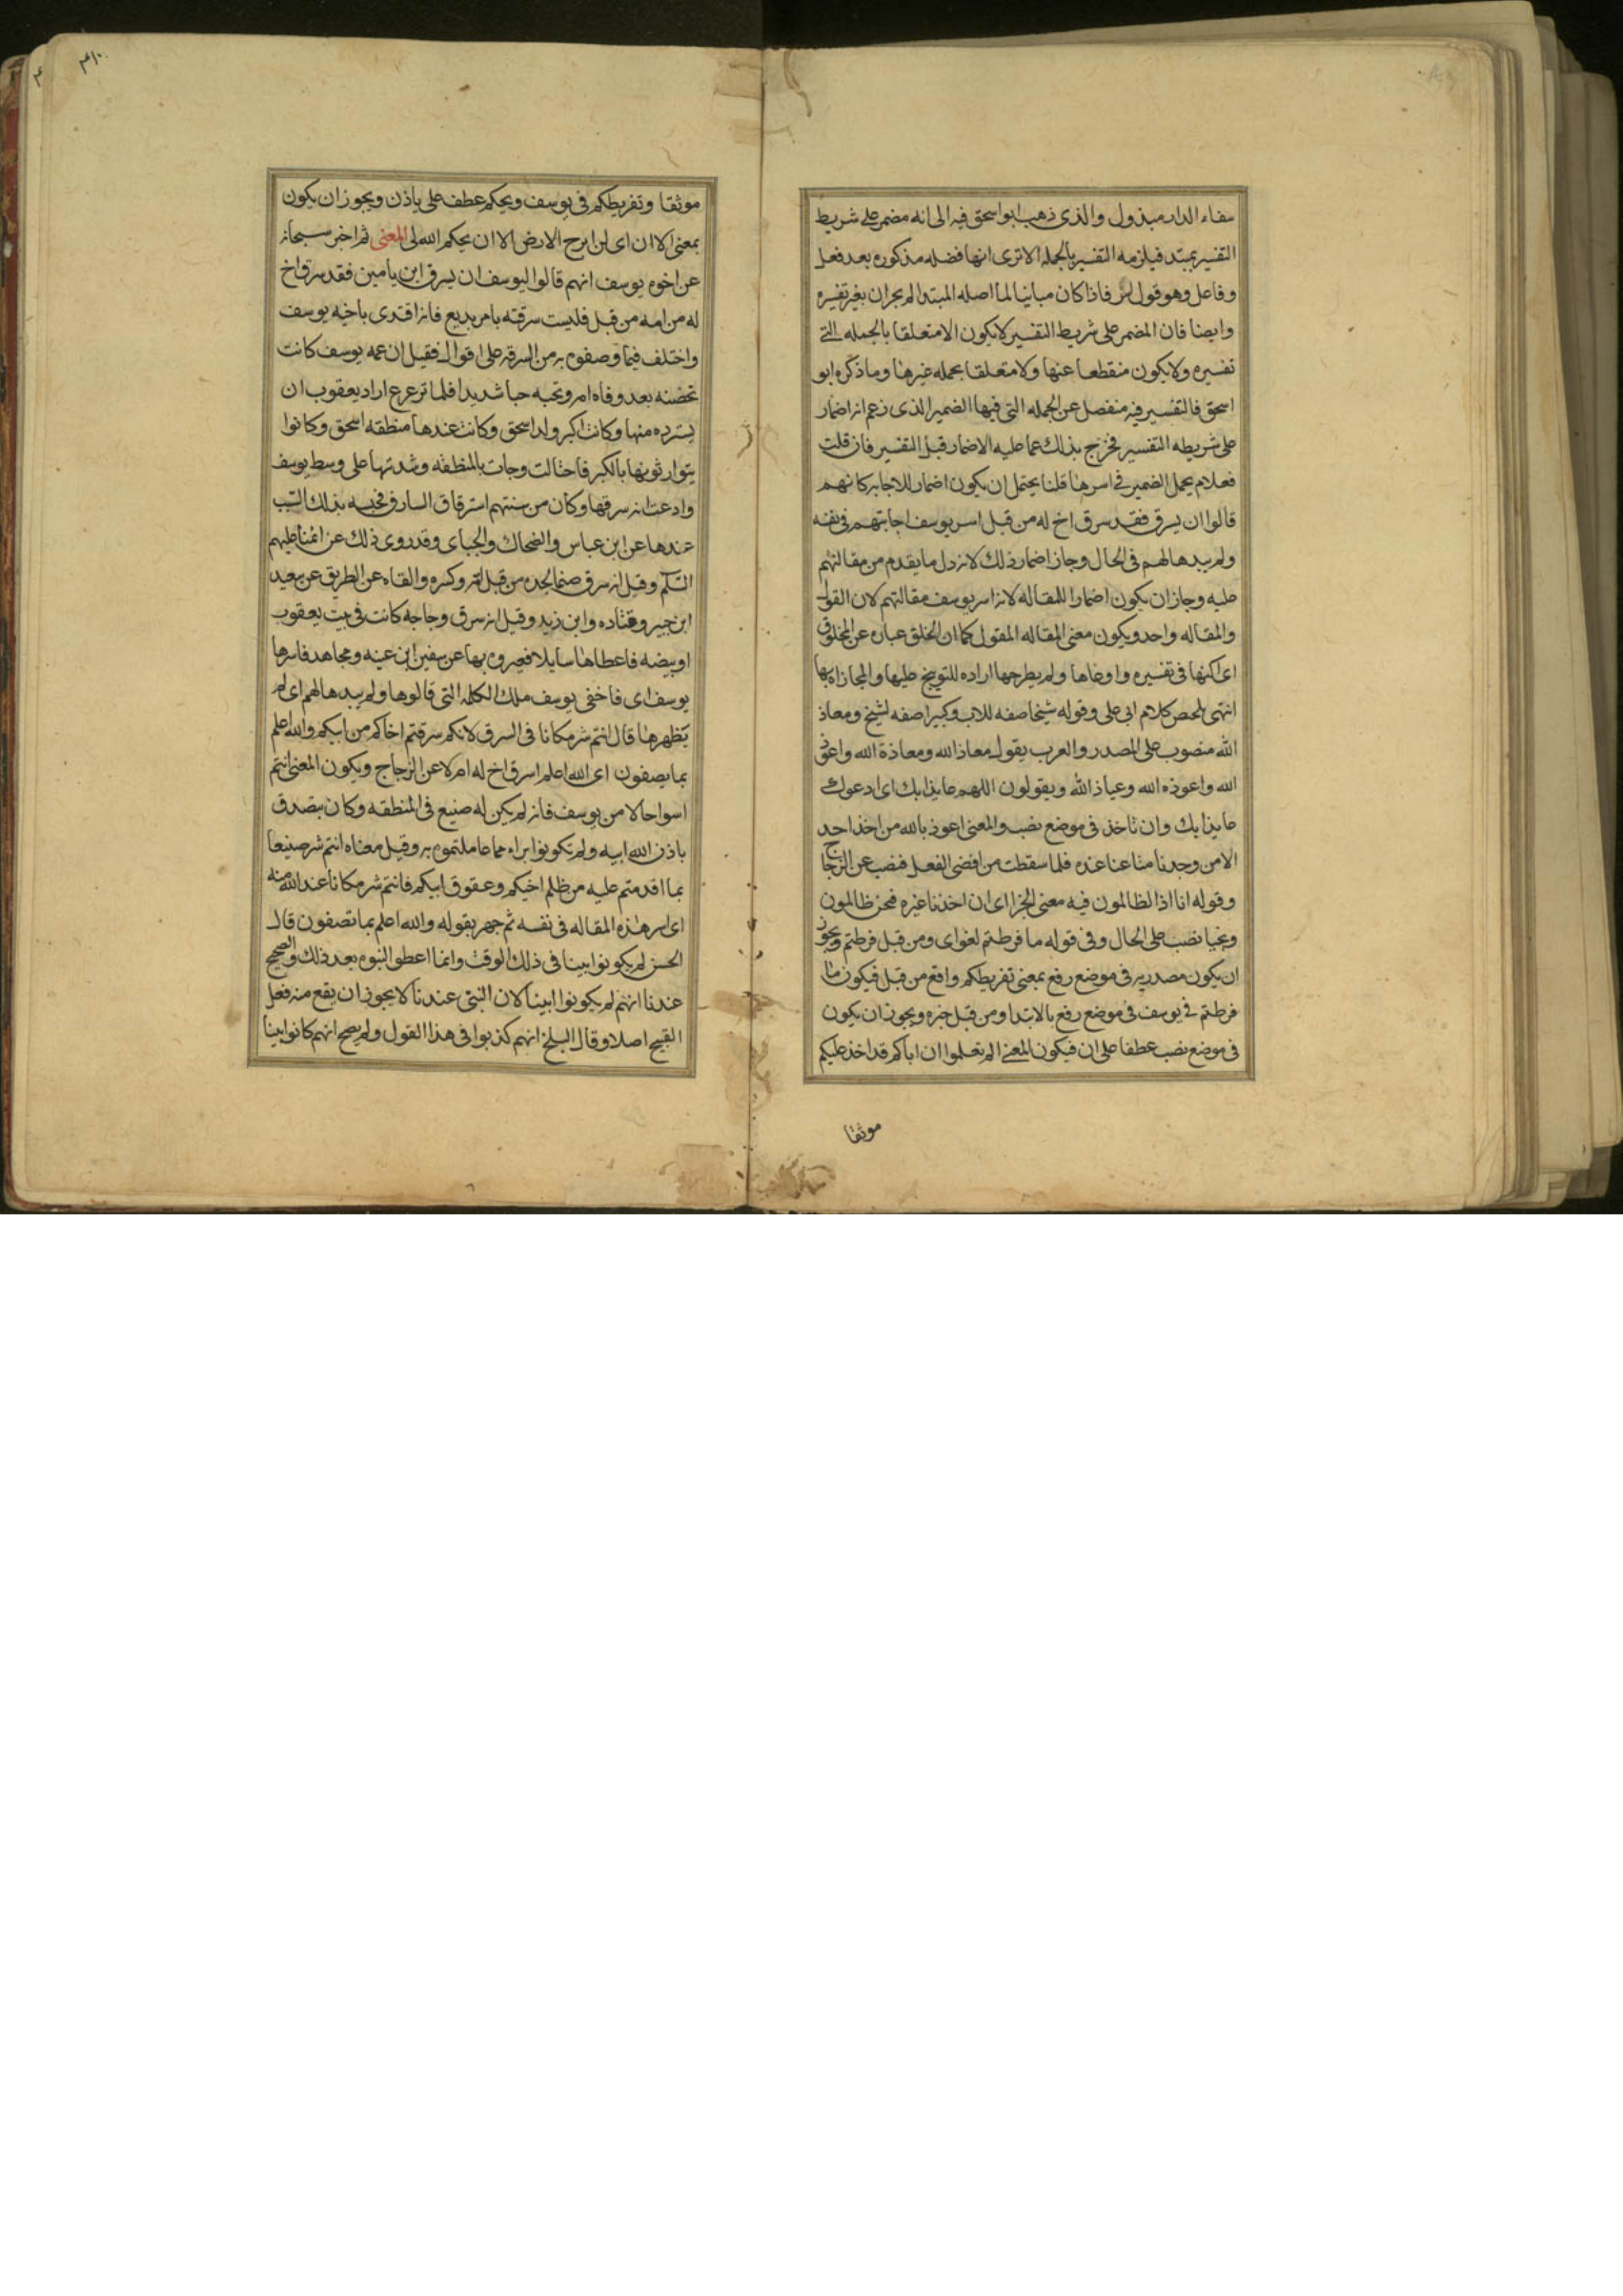 شفاء الدار مبذول والذي ذهب ابو اسحق فيه الى انه مضمر على شريط
التفسير بمبتد فيلزمه التفسير بالجمله الا ترى انها فضله مذكوره بعد فعل
وفاعل وهو قول فاذا كان مباينا لما اصله المبتدا لم يجز ان بغير تفسيره
وايضا فان المضمر على شريط التفسير لا يكون الا متعلقا بالجمله التي
تفسيره ولا يكون منقطعا عنها ولا متعلقا بجمله غيرها وما ذكره ابو
اسحق فالتفسير فيه منفصل عن الجمله التي فيها الضمير الذي زعم انه اضمار
على شريطه التفسير فخرج بذلك عما عليه الاضمار قبل التفسير فان قلت
فعلام يحمل الضمير في اسرها قلنا يحتمل ان يكون اضمار للاجابه كانهم
قالوا ان يسرق فقد سرق اخ له من قبل اسر يوسف اجابتهم في نفسه
ولم يبدها لهم في الحال وجاز اضمار ذلك لانه دل ما يقدم من مقالتهم
عليه وجاز ان يكون اضمارا للمقاله لانه اسر يوسف مقالتهم لان القول
والمقاله واحد ويكون معنى المقاله المقول كما ان الخلق عباره عن المخلوق
اى اكنها في تفسيره واوعاها ولم يطرحها اراده للتوبيخ عليها والمجازاه بها
انتهى ملخص كلام ابي علي وقوله شيخا صفه للاب وكبيرا صفه لشيخ ومعاذ
الله منصوب على المصدر والعرب يقول معاذ الله ومعاذة الله واعوذ
الله واعوذه الله وعياذ الله ويقولون اللهم عايذا بك اى ادعوك
عايذا بك وان ناخذ في موضع نصب والمعنى اعوذ بالله من اخذ احد
الا من وجدنا متاعنا عنده فلما سقطت من افضى الفعل فنصب عن الزجاج
وقوله انا اذا لظالمون فيه معنى الجزا اى ان اخذنا غيره فنحن ظالمون
ونجيا نصب على الحال وفي قوله ما فرطتم لغو اى ومن قبل فرطتم ويجوز
ان يكون مصدريه في موضع رفع بمعنى تفريطكم واقع من قبل فيكون ما
فرطتم في يوسف في موضع رفع بالابتدا ومن قبل خبره ويجوز ان يكون
في موضع نصب عطفا على ان فيكون المعنى الم تعلموا ان اباكم قد اخذ عليكم
موثقا
٣١٠
موثقا وتفريطكم في يوسف ويحكم عطف على ياذن ويجوز ان يكون
بمعنى الا ان اى لن ابرح الارض الا ان يحكم الله لى المعنى ثم اخبر سبحانه
عن اخوه يوسف انهم قالوا ليوسف ان يسرق ابن يامين فقد سرق اخ
له من امه من قبل فليست سرقته بامر بديع فانه اقتدى باخيه يوسف
واختلف فيما وصفوه به من السرقه على اقوال فقيل ان عمه يوسف كانت
تحضنه بعد وفاه امه وتحبه حبا شديدا فلما ترعرع اراد يعقوب ان
يسترده منها وكانت اكبر ولد اسحق وكانت عندها منطقه اسحق وكانوا
يتوارثونها بالكبر فاحتالت وجات بالمنطقه وشدتها على وسط يوسف
وادعت انه سرقها وكان من سنتهم استرقاق السارق فحبسه بذلك السبب
عندها عن ابن عباس والضحاك والجباى وقد روى ذلك عن ائمتنا عليهم
السلم وقيل انه سرق صنما لجده من قبل امه وكسره والقاه عن الطريق عن سعيد
ابن جبير وقتاده وابن زيد وقيل انه سرق دجاجه كانت في بيت يعقوب
او بيضه فاعطاها سايلا فعيروه بها عن سفين ابن عينه ومجاهد فاسرها
يوسف اى فاخفى يوسف تلك الكلمه التي قالوها ولم يبدها لهم اى لم
يظهرها قال انتم شر مكانا في السرق لانكم سرقتم اخاكم من ابيكم والله اعلم
بما يصفون اى الله اعلم اسرق اخ له ام لا عن الزجاج ويكون المعنى انتم
اسوا حالا من يوسف فانه لم يكن له صنيع في المنطقه وكان يتصدق
باذن الله ابيه ولم تكونوا براه مما عاملتموه به وقيل معناه انتم شر صنيعا
بما اقدمتم عليه من ظلم اخيكم وعقوق ابيكم فانتم شر مكانا عند الله منه
اى اسر هذه المقاله في نفسه ثم جهر بقوله والله اعلم بما تصفون قال
الحسن لم يكونوا ابينا في ذلك الوقت وانما اعطوا النبوه بعد ذلك والصحيح
عندنا انهم لم يكونوا ابينا لان النبي عندنا لا يجوز ان يقع منه فعل
القبيح اصلا وقال البلخي انهم كذبوا في هذا القول ولم يصح انهم كانوا ابينا